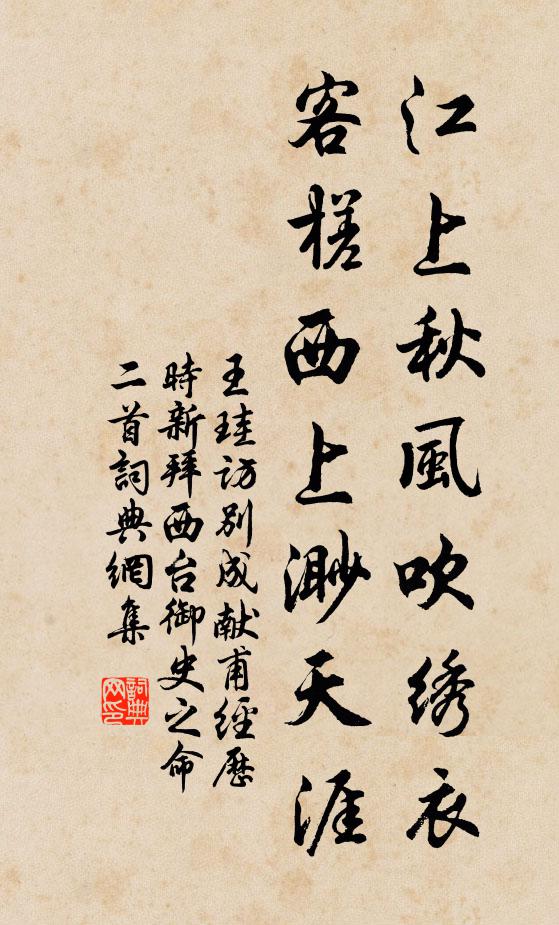 江上秋風吹绣衣
客槎西上渺天涯
王珪访别成献甫經歷
時新拜西台御史之命
二首詞典網集
詞典网印